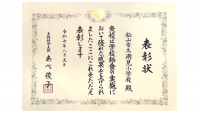 表彰状
松山市立潮見小学校 殿
貴校は学校給食の実施にて
おいて優れた成果を上げられ
ました ここにこれをたたえ
表彰します
令和七年八月五日
文部科学大臣 あべ俊子